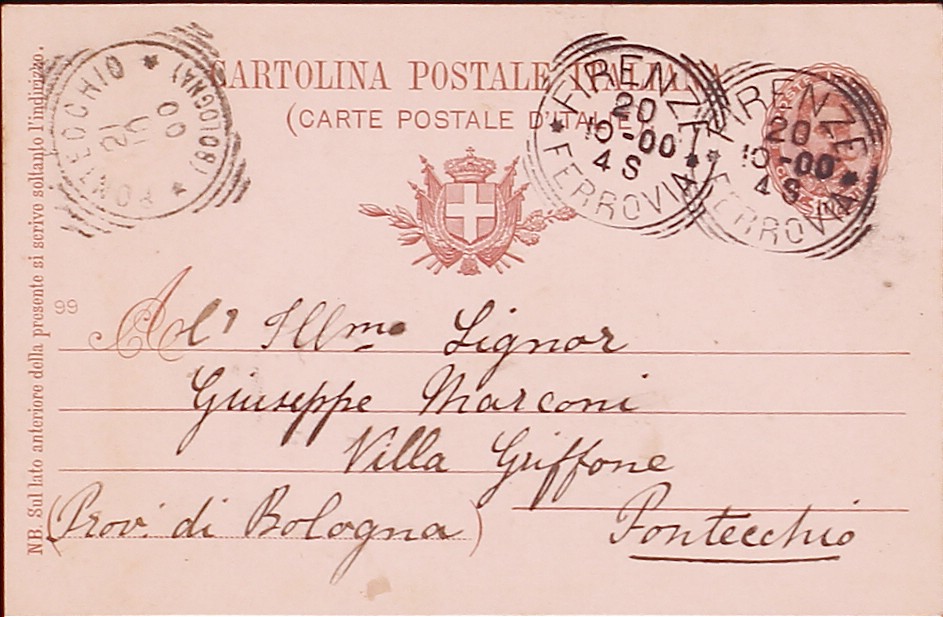 CARTOLINA POSTALE ITALIANA
(CARTE POSTALE D'ITALIE)
PONTECCHIO
(BOLOGNA)
21
10
00
FIRENZE
20
10-00
4 S
FERROVIA
FIRENZE
20
10-00
4 S
FERROVIA
NB. Sul lato anteriore della presente si scrive soltanto l'indirizzo.
99
All' Illmo Signor
Giuseppe Marconi
Villa Griffone
(Prov. di Bologna) Pontecchio